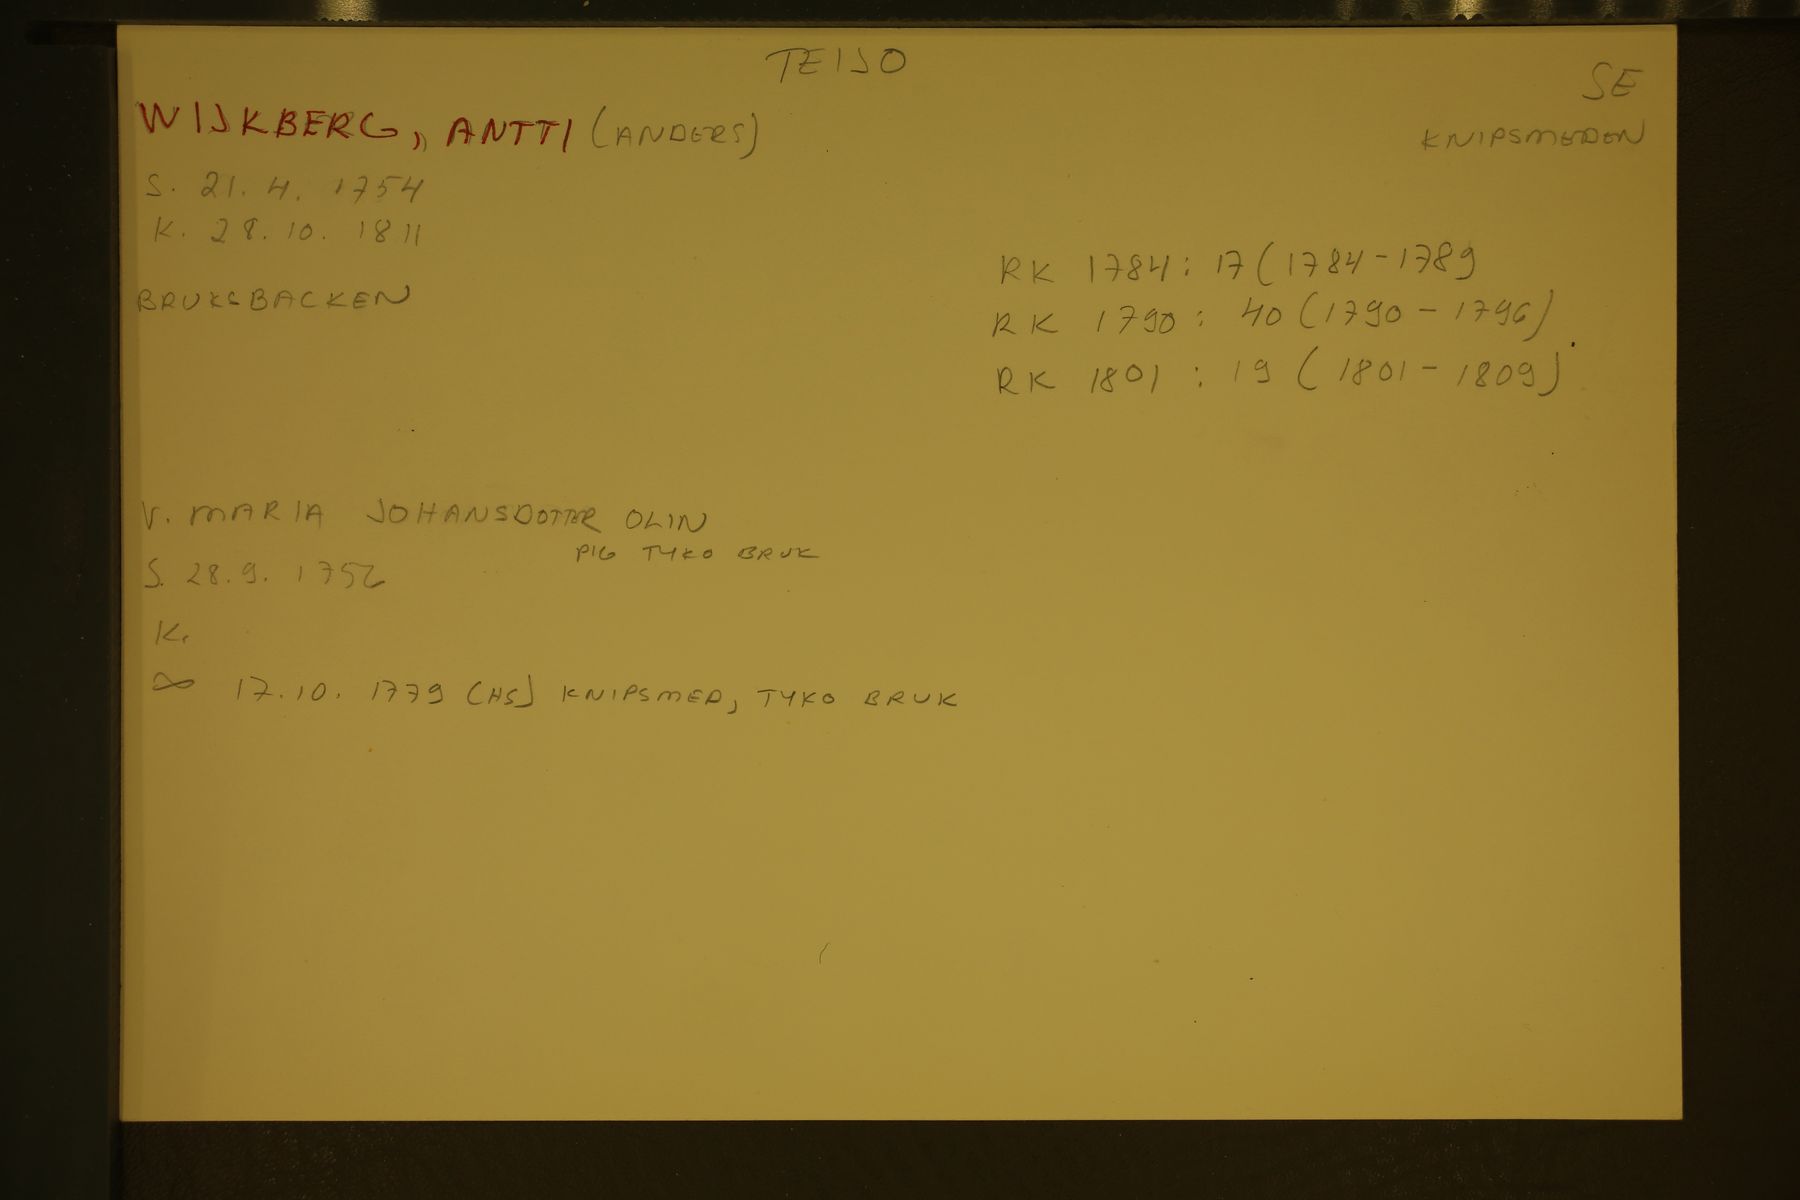 TEIJO
SE
WIJKBERG, ANTTI (ANDERS)
KNIPSMEDEN
S. 21. 4. 1754
K. 28. 10. 1811
BRUKSBACKEN
RK 1784 : 17 (1784 - 1789
RK 1790 : 40 (1790 - 1796)
RK 1801 : 19 (1801 - 1809)
V. MARIA JOHANSDOTTER OLIN
PIG TYKO BRUK
S. 28. 9. 1756
K.
∞ 17. 10. 1779 (HS) KNIPSMED, TYKO BRUK